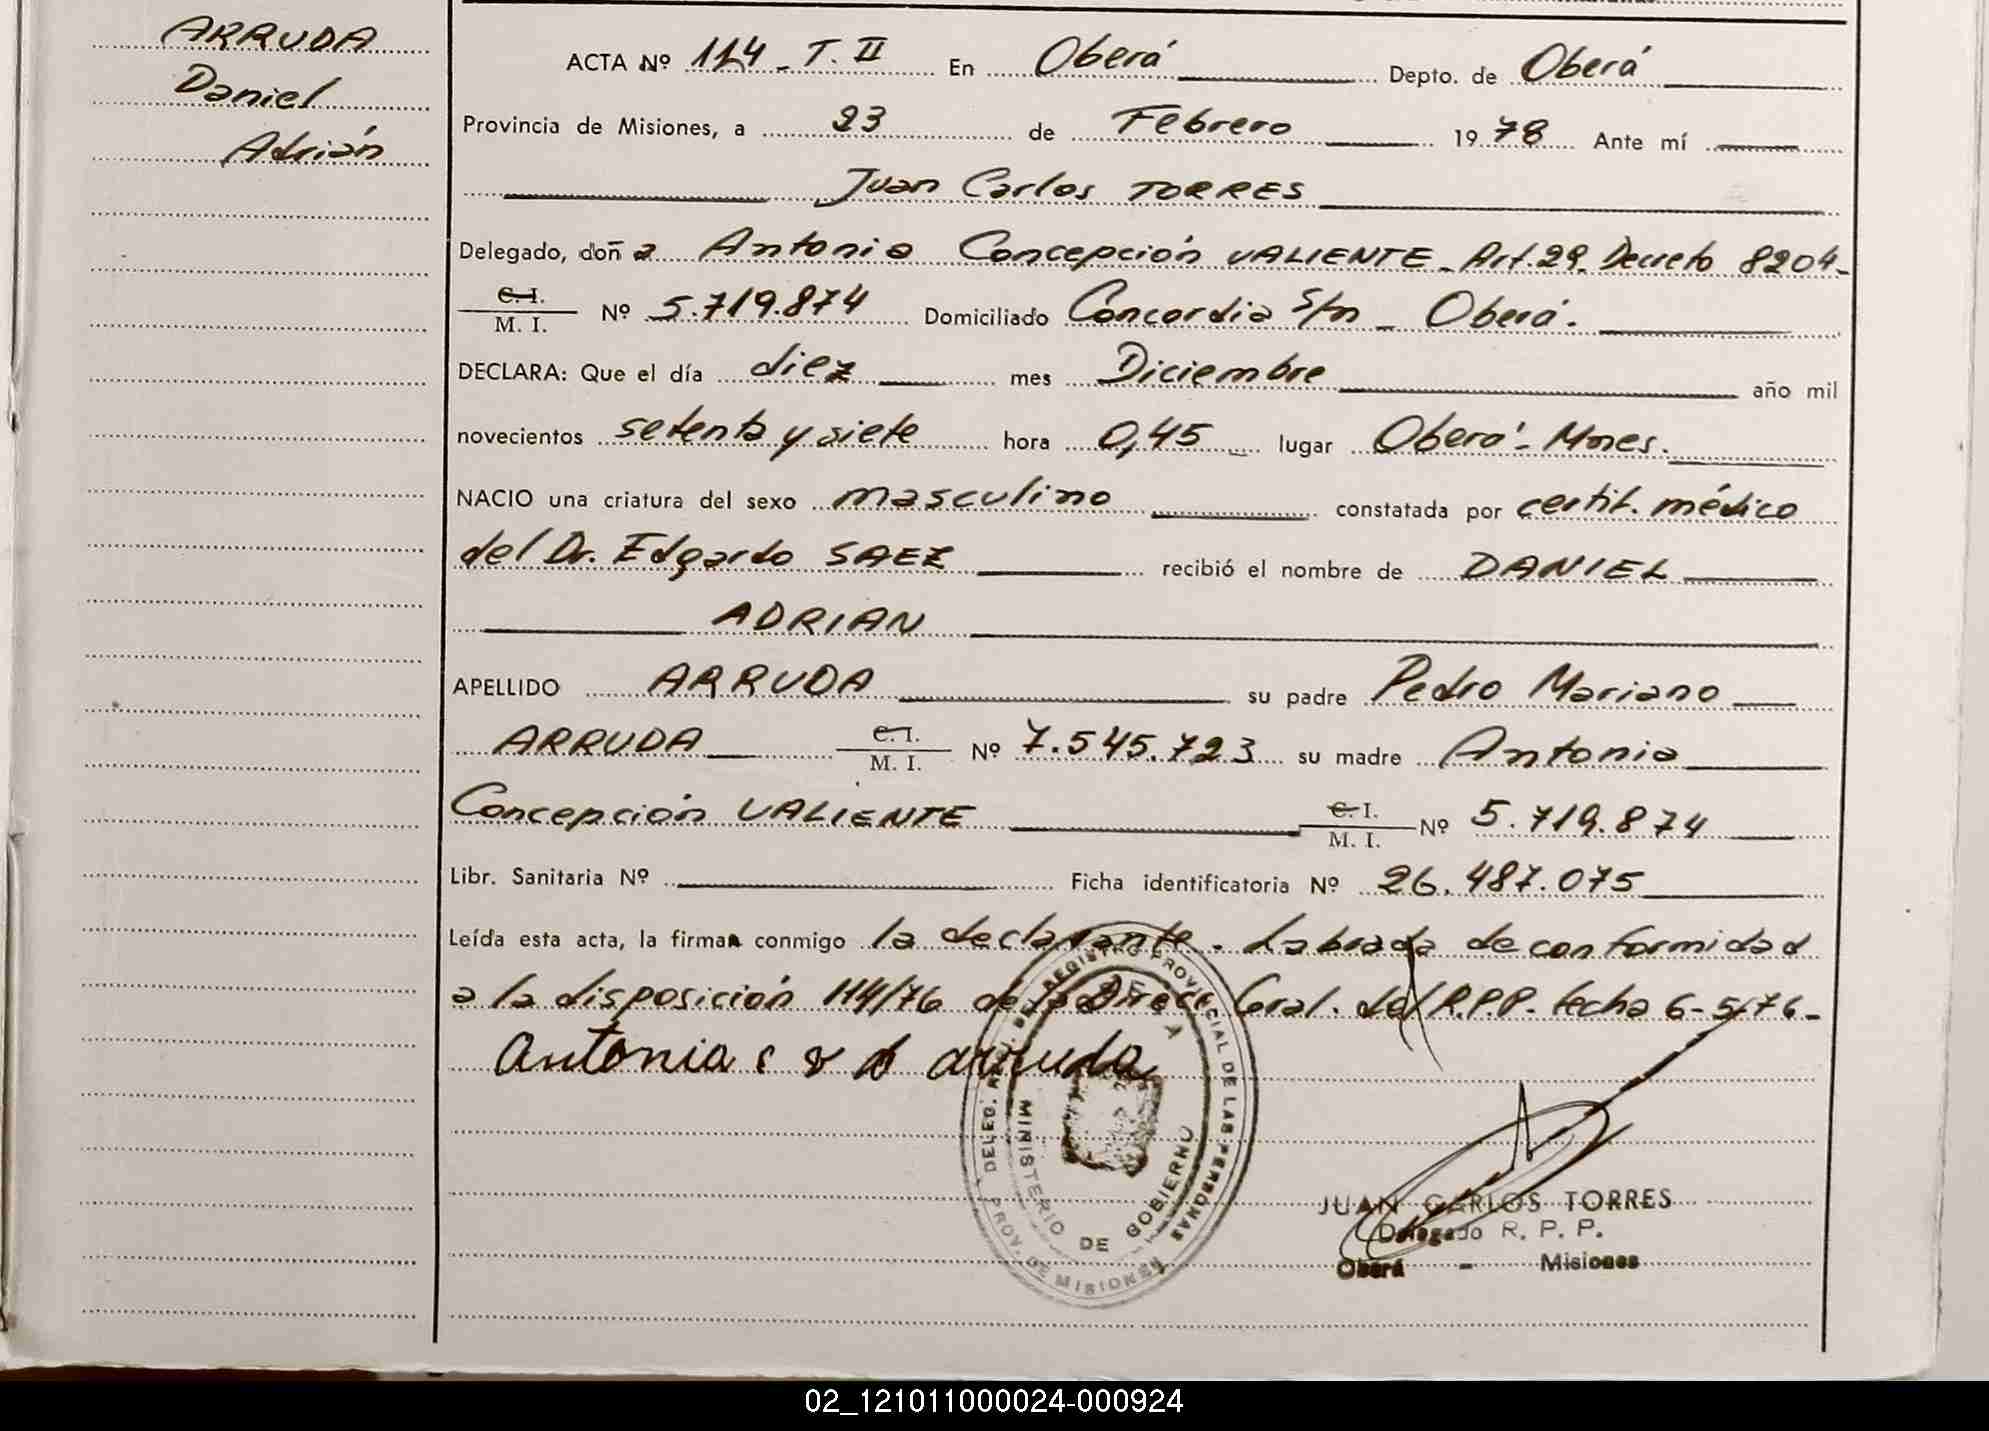 ARRUDA
Daniel
Adrián
ACTA Nº 114 - T. II En Oberá Depto. de Oberá
Provincia de Misiones, a 23 de Febrero 1978 Ante mí
Juan Carlos TORRES
Delegado, doña Antonia Concepción VALIENTE - Art. 29. Decreto 8204-
C. I.
M. I. Nº 5.719.874 Domiciliado Concordia S/n - Oberá.
DECLARA: Que el día diez mes Diciembre año mil
novecientos setenta y siete hora 0,45 lugar Oberá - Mnes.
NACIO una criatura del sexo masculino constatada por certif. médico
del Dr. Edgardo SAEZ recibió el nombre de DANIEL
ADRIAN
APELLIDO ARRUDA su padre Pedro Mariano
ARRUDA C. I. M. I. Nº 7.545.723 su madre Antonia
Concepción VALIENTE C. I. M. I. Nº 5.719.874
Libr. Sanitaria Nº Ficha identificatoria Nº 26.487.075
Leída esta acta, la firman conmigo la declarante. Labrada de conformidad
a la disposición 114/76 de la Direcc. Gral. del R.P.P. fecha 6-5-76-
Antonia c v d arruda
DELEG. REG. DE REGISTRO PROVINCIAL DE LAS PERSONAS
PROV. DE MISIONES
MINISTERIO DE GOBIERNO
JUAN CARLOS TORRES
Delegado R. P. P.
Oberá - Misiones
02_121011000024-000924